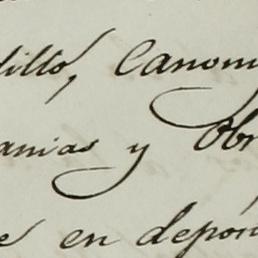 dillo, Canony
anias y Obr
e en depón